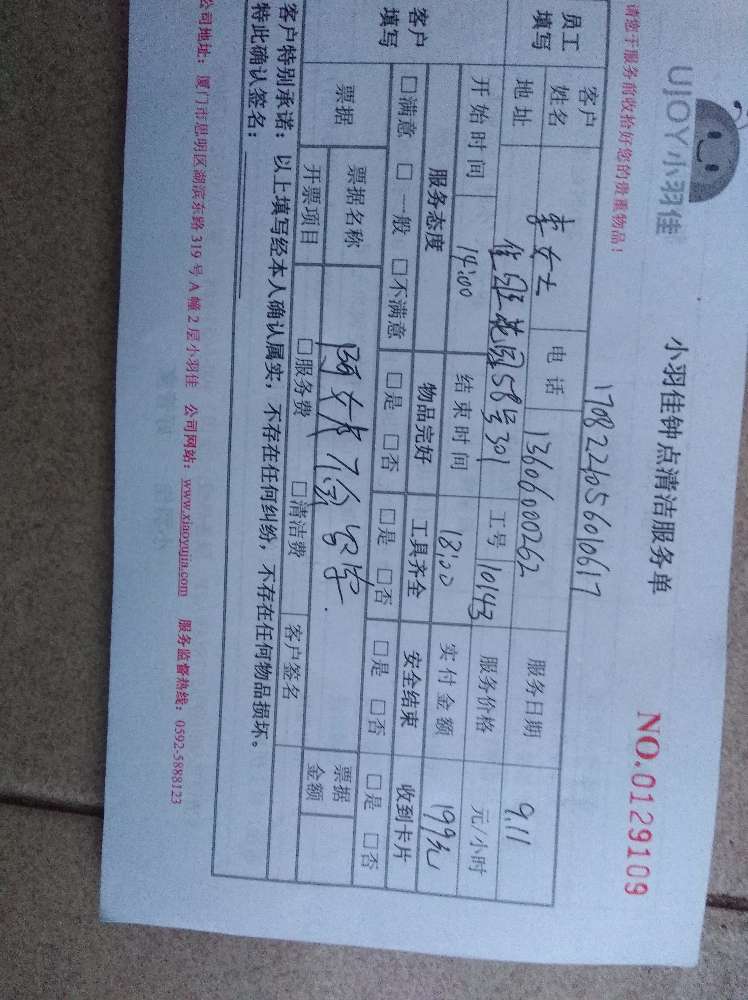 UJOY小羽佳
小羽佳钟点清洁服务单
NO.0129109
请您于服务前收拾好您的贵重物品!
1708224056010617
员工填写 客户姓名 李女士 电话 13606000262 服务日期 9.11
地址 佳丽花园58号301 工号 10143 服务价格 元/小时
开始时间 14:00 结束时间 18:00 实付金额 199元
客户填写 服务态度 物品完好 工具齐全 安全结束 收到卡片
□满意 □一般 □不满意 □是 □否 □是 □否 □是 □否 □是 □否
票据 票据名称 票据金额
开票项目 □服务费 □清洁费 客户签名
客户特别承诺:以上填写经本人确认属实,不存在任何纠纷,不存在任何物品损坏。
特此确认签名:
公司地址:厦门市思明区湖滨东路319号A幢2层小羽佳 公司网站:www.xiaoyujia.com 服务监督热线:0592-5888123